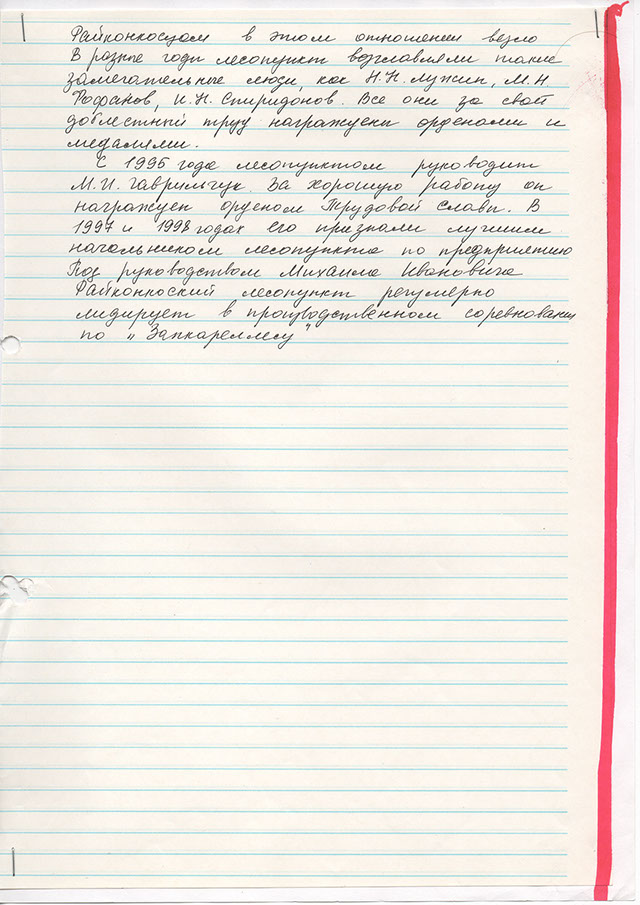 Райконкосцам в этом отношении везло
В разные годы лесопункт возглавляли такие
замечательные люди, как Н.Н. Лужин, М.Н.
Фофанов, И.Н. Спиридонов. Все они за свой
доблестный труд награждены орденами и
медалями.
С 1995 года лесопунктом руководит
М.И. Гаврильчук. За хорошую работу он
награжден орденом Трудовой Славы. В
1997 и 1998 годах его признали лучшим
начальником лесопункта по предприятию
Под руководством Михаила Ивановича
Райконкоский лесопункт регулярно
лидирует в производственном соревновании
по „Запкареллесу"